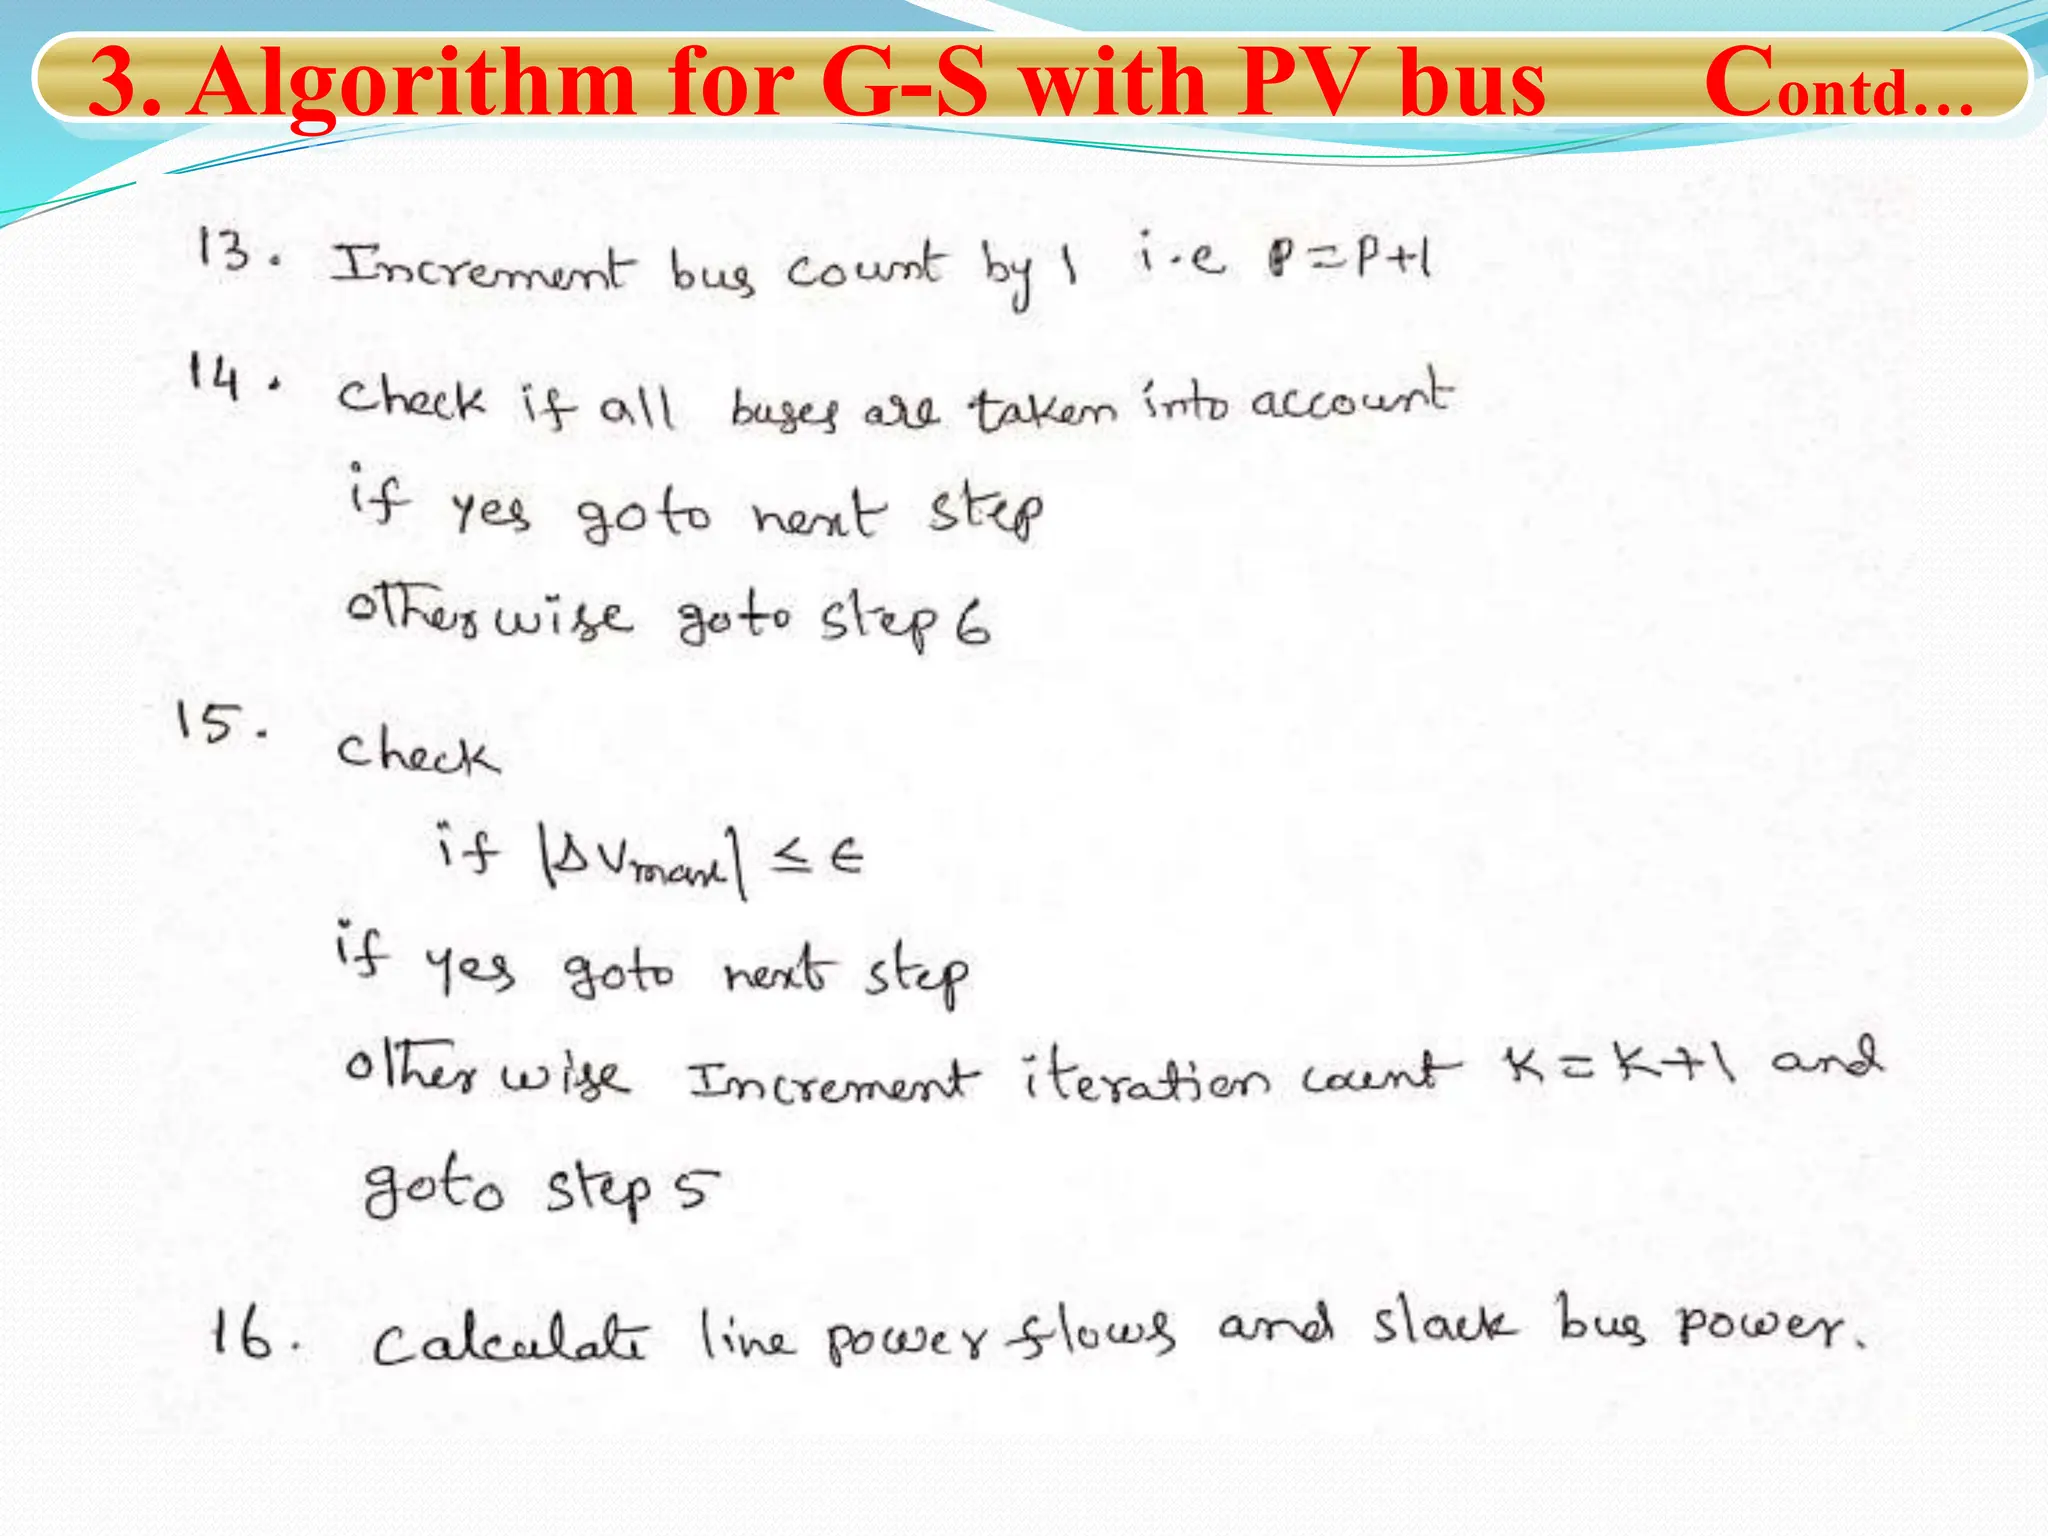 3. Algorithm for G-S with PV bus Contd...
13. Increment bus count by 1 i.e P=P+1
14. check if all buses are taken into account
if yes goto next step
otherwise goto step 6
15. check
if |ΔVmax| ≤ ∈
if yes goto next step
otherwise Increment iteration count K=K+1 and
goto step 5
16. calculate line power flows and slack bus power.